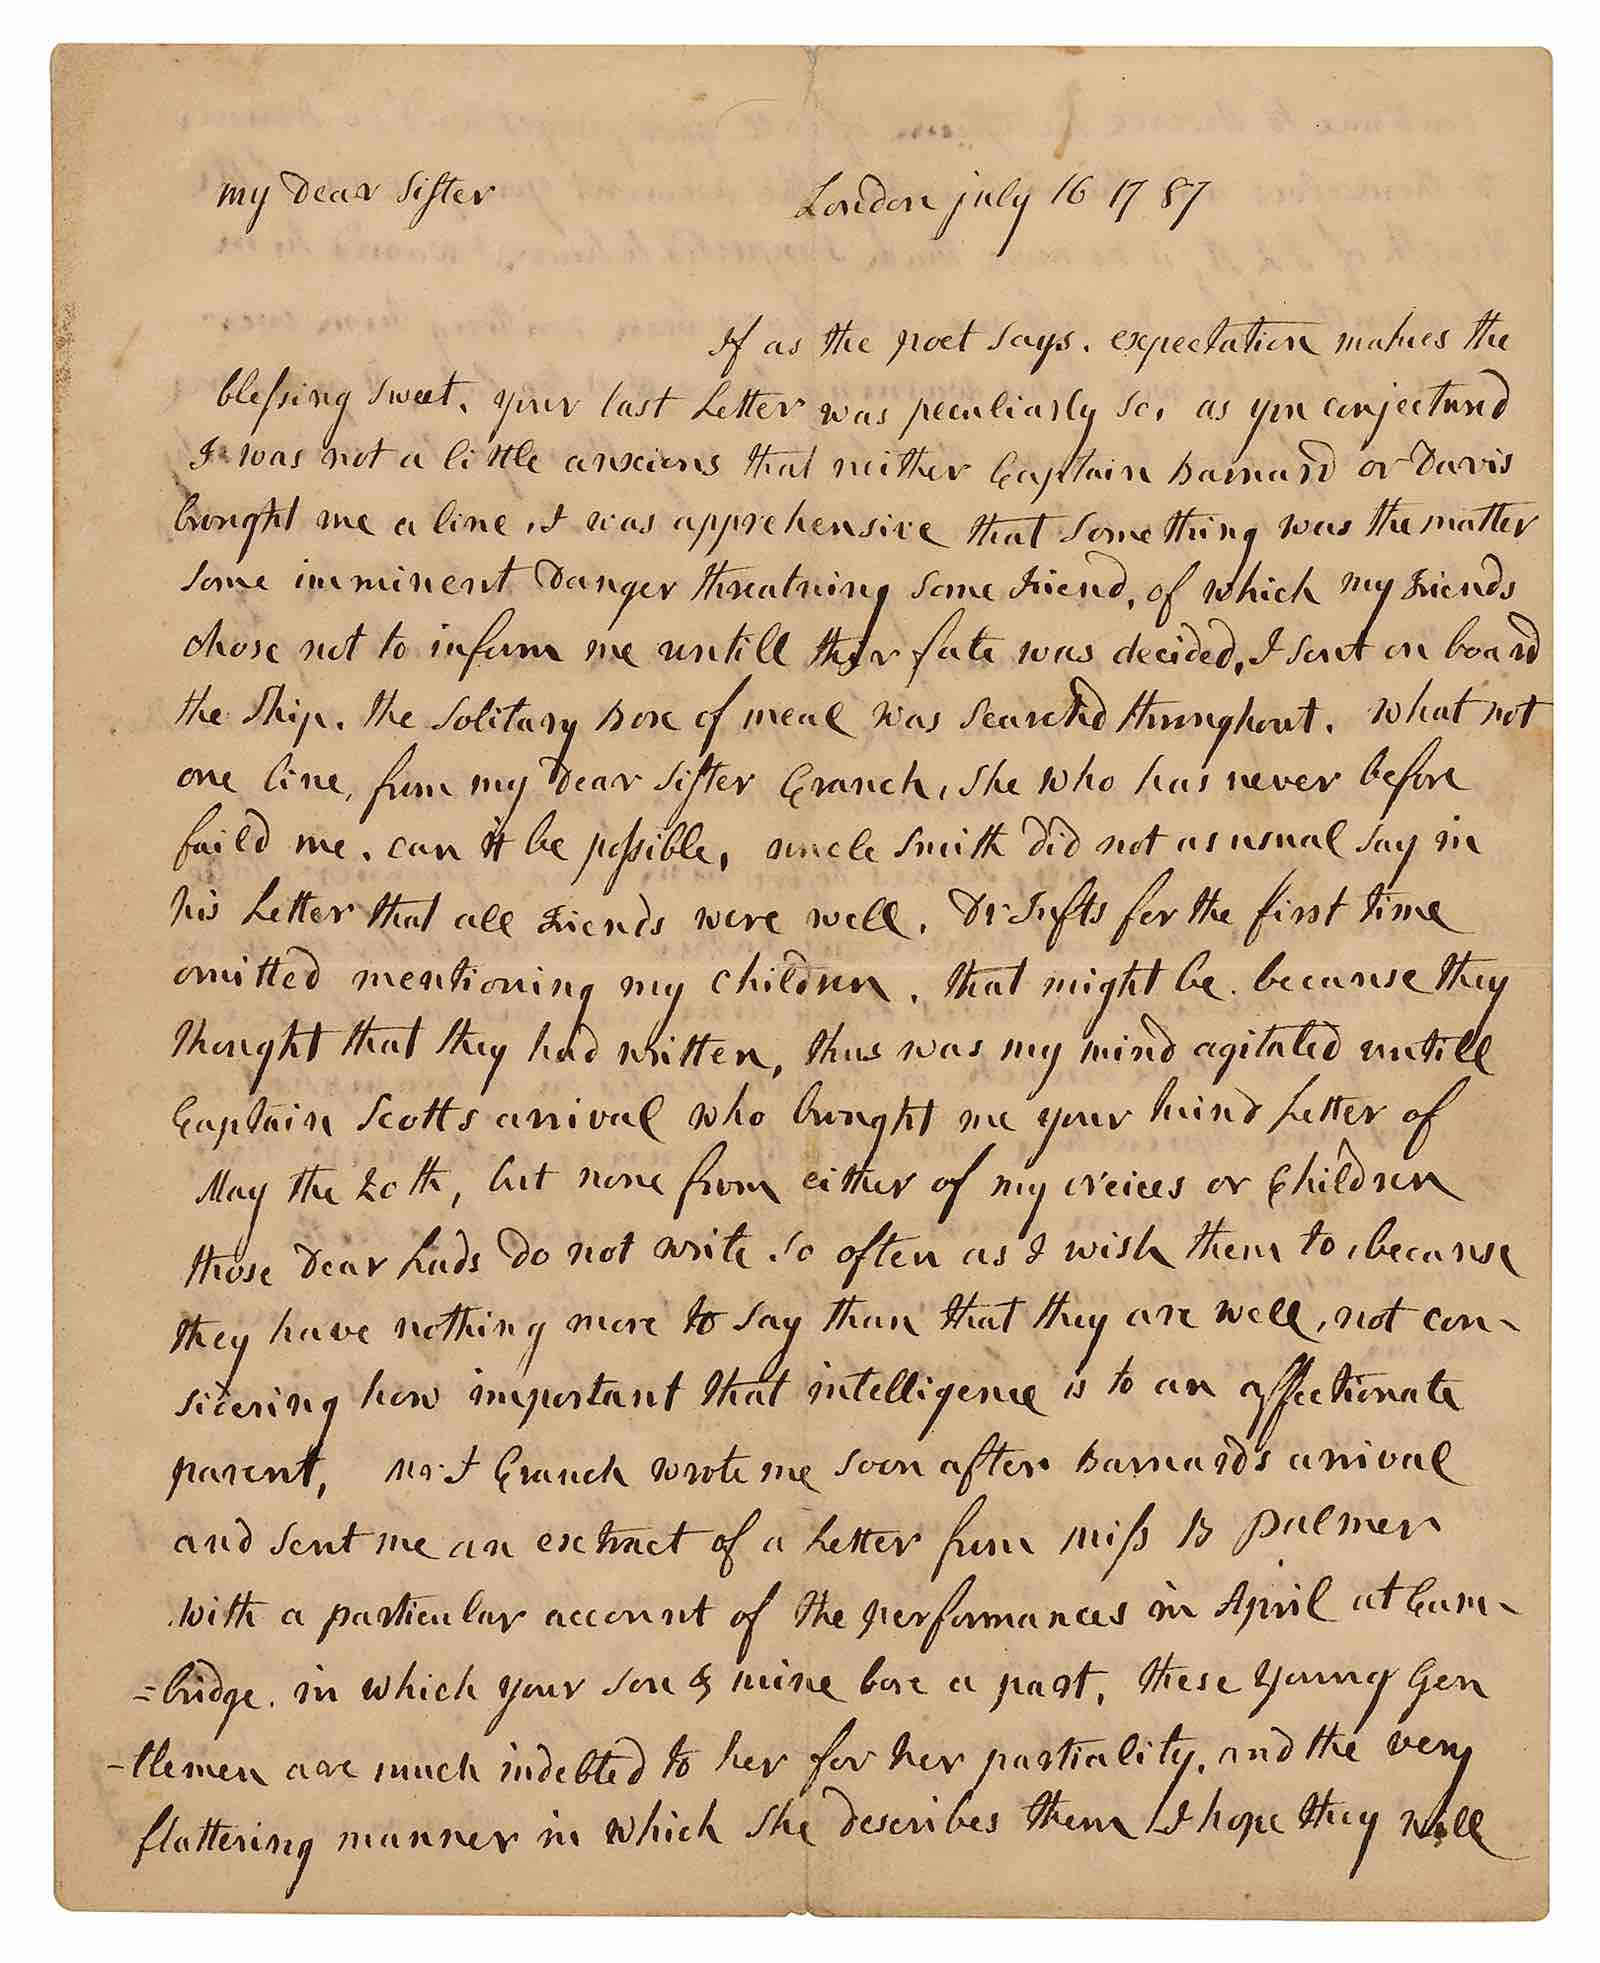 my Dear Sister
London july 16 1787
If as the poet says. expectation makes the
blessing sweet, your last Letter was peculiarly so, as you conjecturd
I was not a little anxious that neither Captain Barnard or Davis
brought me a line, I was apprehensive that something was the matter
some imminent Danger threatning some Friend, of which my Friends
chose not to inform me untill their fate was decided, I sent on board
the Ship, the solitary Box of meal was searchd throughout. What not
one line, from my Dear Sister Cranch, she who has never before
faild me. can it be possible, uncle Smith did not as usual say in
his Letter that all Friends were well. Dr Tufts for the first time
omitted mentioning my children. that might be because they
thought that they had written, thus was my mind agitated untill
Captain Scotts arrival who brought me your kind Letter of
May the 20th, but none from either of my neices or Children
those Dear Lads do not write so often as I wish them to, because
they have nothing more to say than that they are well, not con-
sidering how important that intelligence is to an affectionate
parent, Mr J Cranch wrote me soon after Barnards arrival
and sent me an extract of a Letter from Miss B Palmer
with a particular account of the performances in April at Cam-
=bridge. in which your son & mine bore a part, these Young Gen
-tlemen are much indebted to her for her partiality, and the very
flattering manner in which she describes them I hope they will